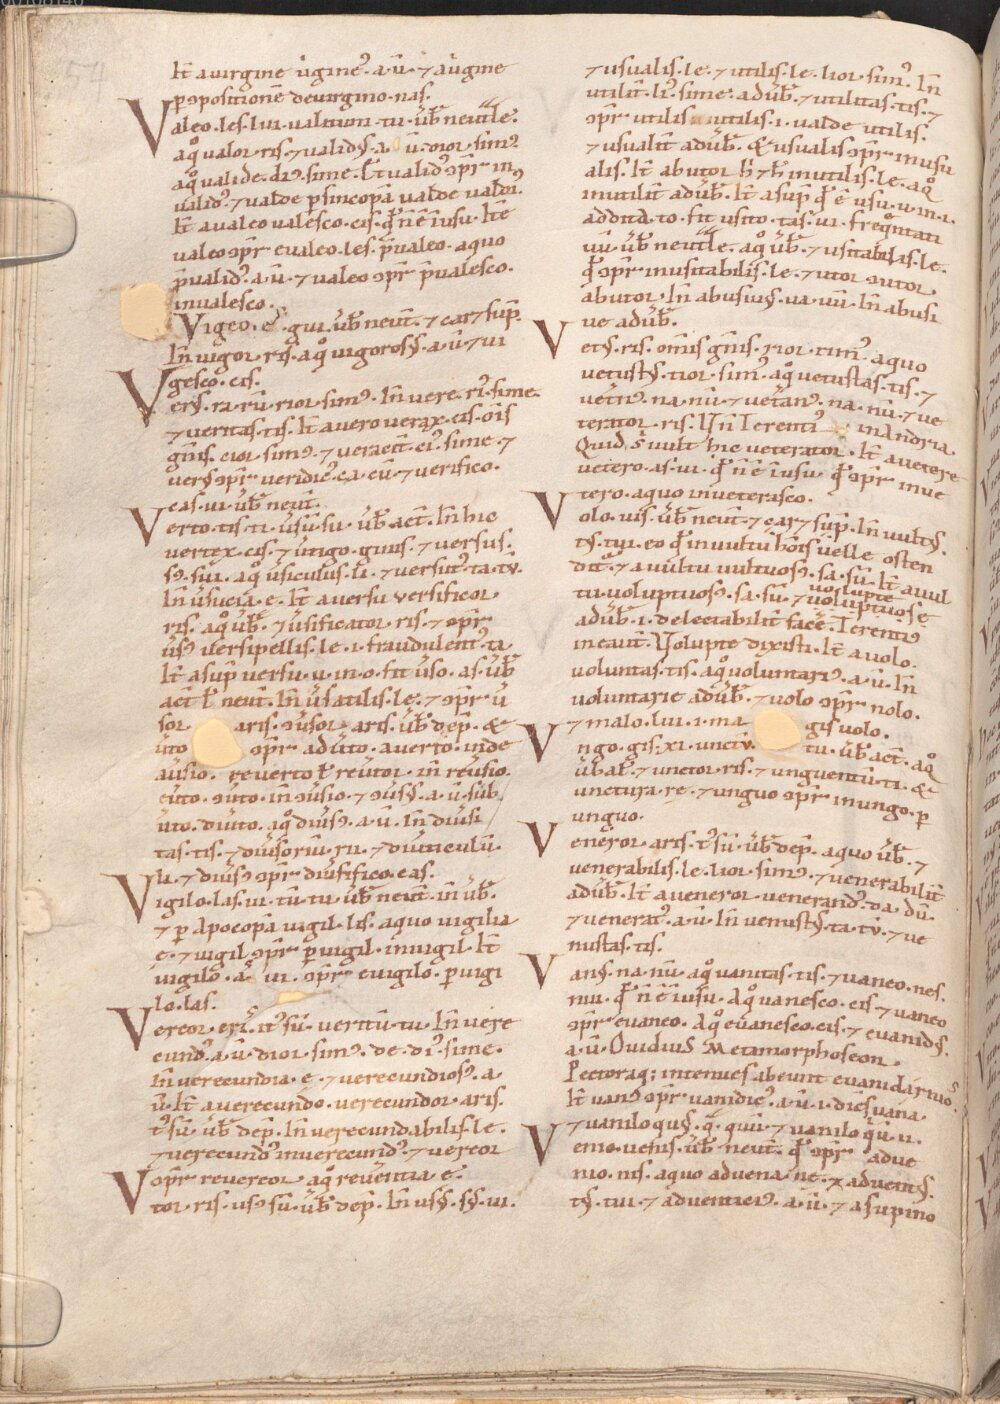 It̄ a uirgine u̇gine᷒ a. ū. ⁊ aůgine
ꝑ ↄpositionē deuirgino. nas.
Valeo. les. lui. ualitum. tu. ūb̄ neut̄le.
aq̊ ualor. ris. ⁊ ualidꝰ. a. ū. dior. simꝰ
aq̊ ualide. diꝰ. sime. It̄ ualidꝰ ↄpr̄ in
ualidꝰ. ⁊ ualde p sincopā ualde ualdiꝰ.
It̄ aualeo ualesco. cis. qd̄ n̄ ē ī usu. It̄ e
ualeo ↄpr̄ eualeo. les. p̄ualeo. aquo
p̄ualidꝰ. a. ū. ⁊ ualeo ↄpr̄ p̄ualesco.
inualesco.
Vigeo. es. gui. ūb̄ neut̄. ⁊ car& sup̄.
In̄ uigor. ris. aq̊ uigorosꝰ. a. ū. ⁊ ui
gesco. cis.
Verꝰ. ra. rū. rior. simꝰ. In̄ uere. riꝰ. sime.
⁊ ueritas. tis. It̄ auero uerax. cis. ōis
gn̄is. cior. simꝰ. ⁊ ueracit̄. ciꝰ. sime. ⁊
uerꝰ ↄpr̄ ueridicꝰ. ca. cū. ⁊ uerifico.
cas. ui. ūb̄ neut̄.
Verto. tis. ti. u̇sū. su. ūb̄ act̄. In̄ hic
uertex. cis. ⁊ u̇tigo. ginis. ⁊ uersus.
sꝰ. sui. aq̊ u̇siculus. li. ⁊ uersutꝰ. ta. tū.
In̄ u̇sucia. e. It̄ auersu uersificor
ris. aq̊ ūb̄. ⁊ u̇sificator. ris. ⁊ ↄpr̄
u̇sꝰ u̇ersipellis. le. i. fraudulentꝰ. ta
It̄ asup̄ uersu. u. in. o. fit u̇so. as. ūb̄
act̄ ł neut̄. In̄ u̇satilis. le. ⁊ ↄpr̄ u̇
sor aris. ↄu̇sor. aris. ūb̄ dep̄. &
u̇to ↄpr̄ adu̇to. auerto. inde
au̇sio. reuerto ł reu̇tor. in̄ reu̇sio.
eu̇to. ↄu̇to. in̄ ↄu̇sio. ⁊ ↄu̇sꝰ. a. ū. sub
u̇to. diu̇to. aq̊ diu̇sꝰ. a. ū. In̄ diu̇si
tas. tis. ⁊ diu̇soriū. rii. ⁊ diu̇ticulū.
li. ⁊ diu̇sꝰ ↄpr̄ diu̇sifico. cas.
Vigilo. las. ui. tū. tu. ūb̄ neut̄. in̄ ūb̄.
⁊ ꝑ Apocopā uigil. lis. aquo uigilia
e. ⁊ uigil ↄpr̄ ꝑuigil. inuigil. It̄
uigilo. as. ui. ↄpr̄ euigilo. ꝑuigi
lo. las.
Vereor. eriꝰ. itꝰ sū. ueritū. tu. In̄ uere
cundꝰ. a. ū. dior. simꝰ. de. diꝰ. sime.
In̄ uerecundia. e. ⁊ uerecundiosꝰ. a.
ū. It̄ a uerecundo. uerecundor. aris.
tꝰ sū. ūb̄ dep̄. In̄ uerecundabilis. le.
⁊ uerecundꝰ inuerecundꝰ. ⁊ uereor
ↄpr̄ reuereor. aq̊ reu̇entia. e.
Vtor. ris. usꝰ sū. ūb̄ dep̄. In̄ usꝰ. sꝰ. ui.
⁊ usualis. le. ⁊ utilis. le. lior. simꝰ. In̄
utilit̄. liꝰ. sime. adūb̄. ⁊ utilitas. tis. ⁊
ↄpr̄ utilis utilis. i. ualde utilis.
⁊ usualit̄ adūb̄. & usualis ↄpr̄ inusu
alis. It̄ abutor. inutilis. le. aq̊
inutilit̄ adūb̄. It̄ a sup̄ qd̄ ē usu. u. in. i.
addita. to. fit usito. tas. ui. freq̄ntati
uū. ūb̄ neut̄le. aq̊ ūb̄. ⁊ usitabilis. le.
qd̄ ↄpr̄ inusitabilis. le. ⁊ utor ↄutor
abutor. In̄ abusiuꝰ. ua. uū. In̄ abusi
ue adūb̄.
Vetꝰ. ris. om̄is gn̄is. rior. rimꝰ. aquo
uetustꝰ. tior. simꝰ. aq̊ uetustas. tis. ⁊
uet̄nꝰ. na. nū. ⁊ uet̄anꝰ. na. nū. ⁊ ue
terator. ris. Vn̄ Terentiꝰ in Andria.
Quid s̄ uult hic ueterator. It̄ auetere
uetero. as. ui. qd̄ n̄ ē ī usu. qd̄ ↄpr̄ inue
tero. aquo inueterasco.
Volo. uis. ūb̄ neut̄. ⁊ car& sup̄. In̄ uultꝰ.
tꝰ. tui. eo qd̄ in uultu hōis u̇elle osten
dit̄. ⁊ a uultu uultuosꝰ. sa. sū. It̄ a uul
tu. uoluptuosꝰ. sa. sū. ⁊ uolupte uoluptuose
adūb̄. i. delectabilit̄ facē. Terentiꝰ
ineaut̄. Volupte dixisti. It̄ a uolo.
uoluntas. tis. aq̊ uoluntariꝰ. a. ū. In̄
uoluntarie adūb̄. ⁊ uolo ↄpr̄ nolo.
⁊ malo. lui. i. ma gis uolo.
Vngo. gis. xi. unctū. tu. ūb̄ act̄. aq̊
ūbal̄. ⁊ unctor. ris. ⁊ unguentū. ti. &
unctura. rę. ⁊ unguo ↄpr̄ inungo. ꝑ
unguo.
Veneror. aris. tꝰ sū. ūb̄ dep̄. aquo ūb̄. ⁊
uenerabilis. le. lior. simꝰ. ⁊ uenerabilit̄
adūb̄. It̄ a ueneror. uenerandꝰ. da. dū.
⁊ ueneratꝰ. a. ū. In̄ uenustꝰ. ta. tū. ⁊ ue
nustas. tis.
Vanꝰ. na. nū. aq̊ uanitas. tis. ⁊ uaneo. nes.
nui. qd̄ n̄ ē ī usu. Aq̊ uanesco. cis. ⁊ uaneo
ↄpr̄ euaneo. Aq̊ euanesco. cis. ⁊ euanidꝰ.
a. ū. Ouidius Metamorphoseon.
Pectoraq; intenues abeunt euanida riuos.
It̄ uanꝰ ↄpr̄ uanidicꝰ. a. ū. i. dicēs uana.
⁊ uaniloquꝰ. q̄. quū. ⁊ uaniloq̄ū. ii.
Venio. uenis. ūb̄ neut̄. qd̄ ↄpr̄ adue
nio. nis. aquo aduena. ne. ⁊ aduentꝰ.
tꝰ. tui. ⁊ aduenticiꝰ. a. ū. ⁊ a supino